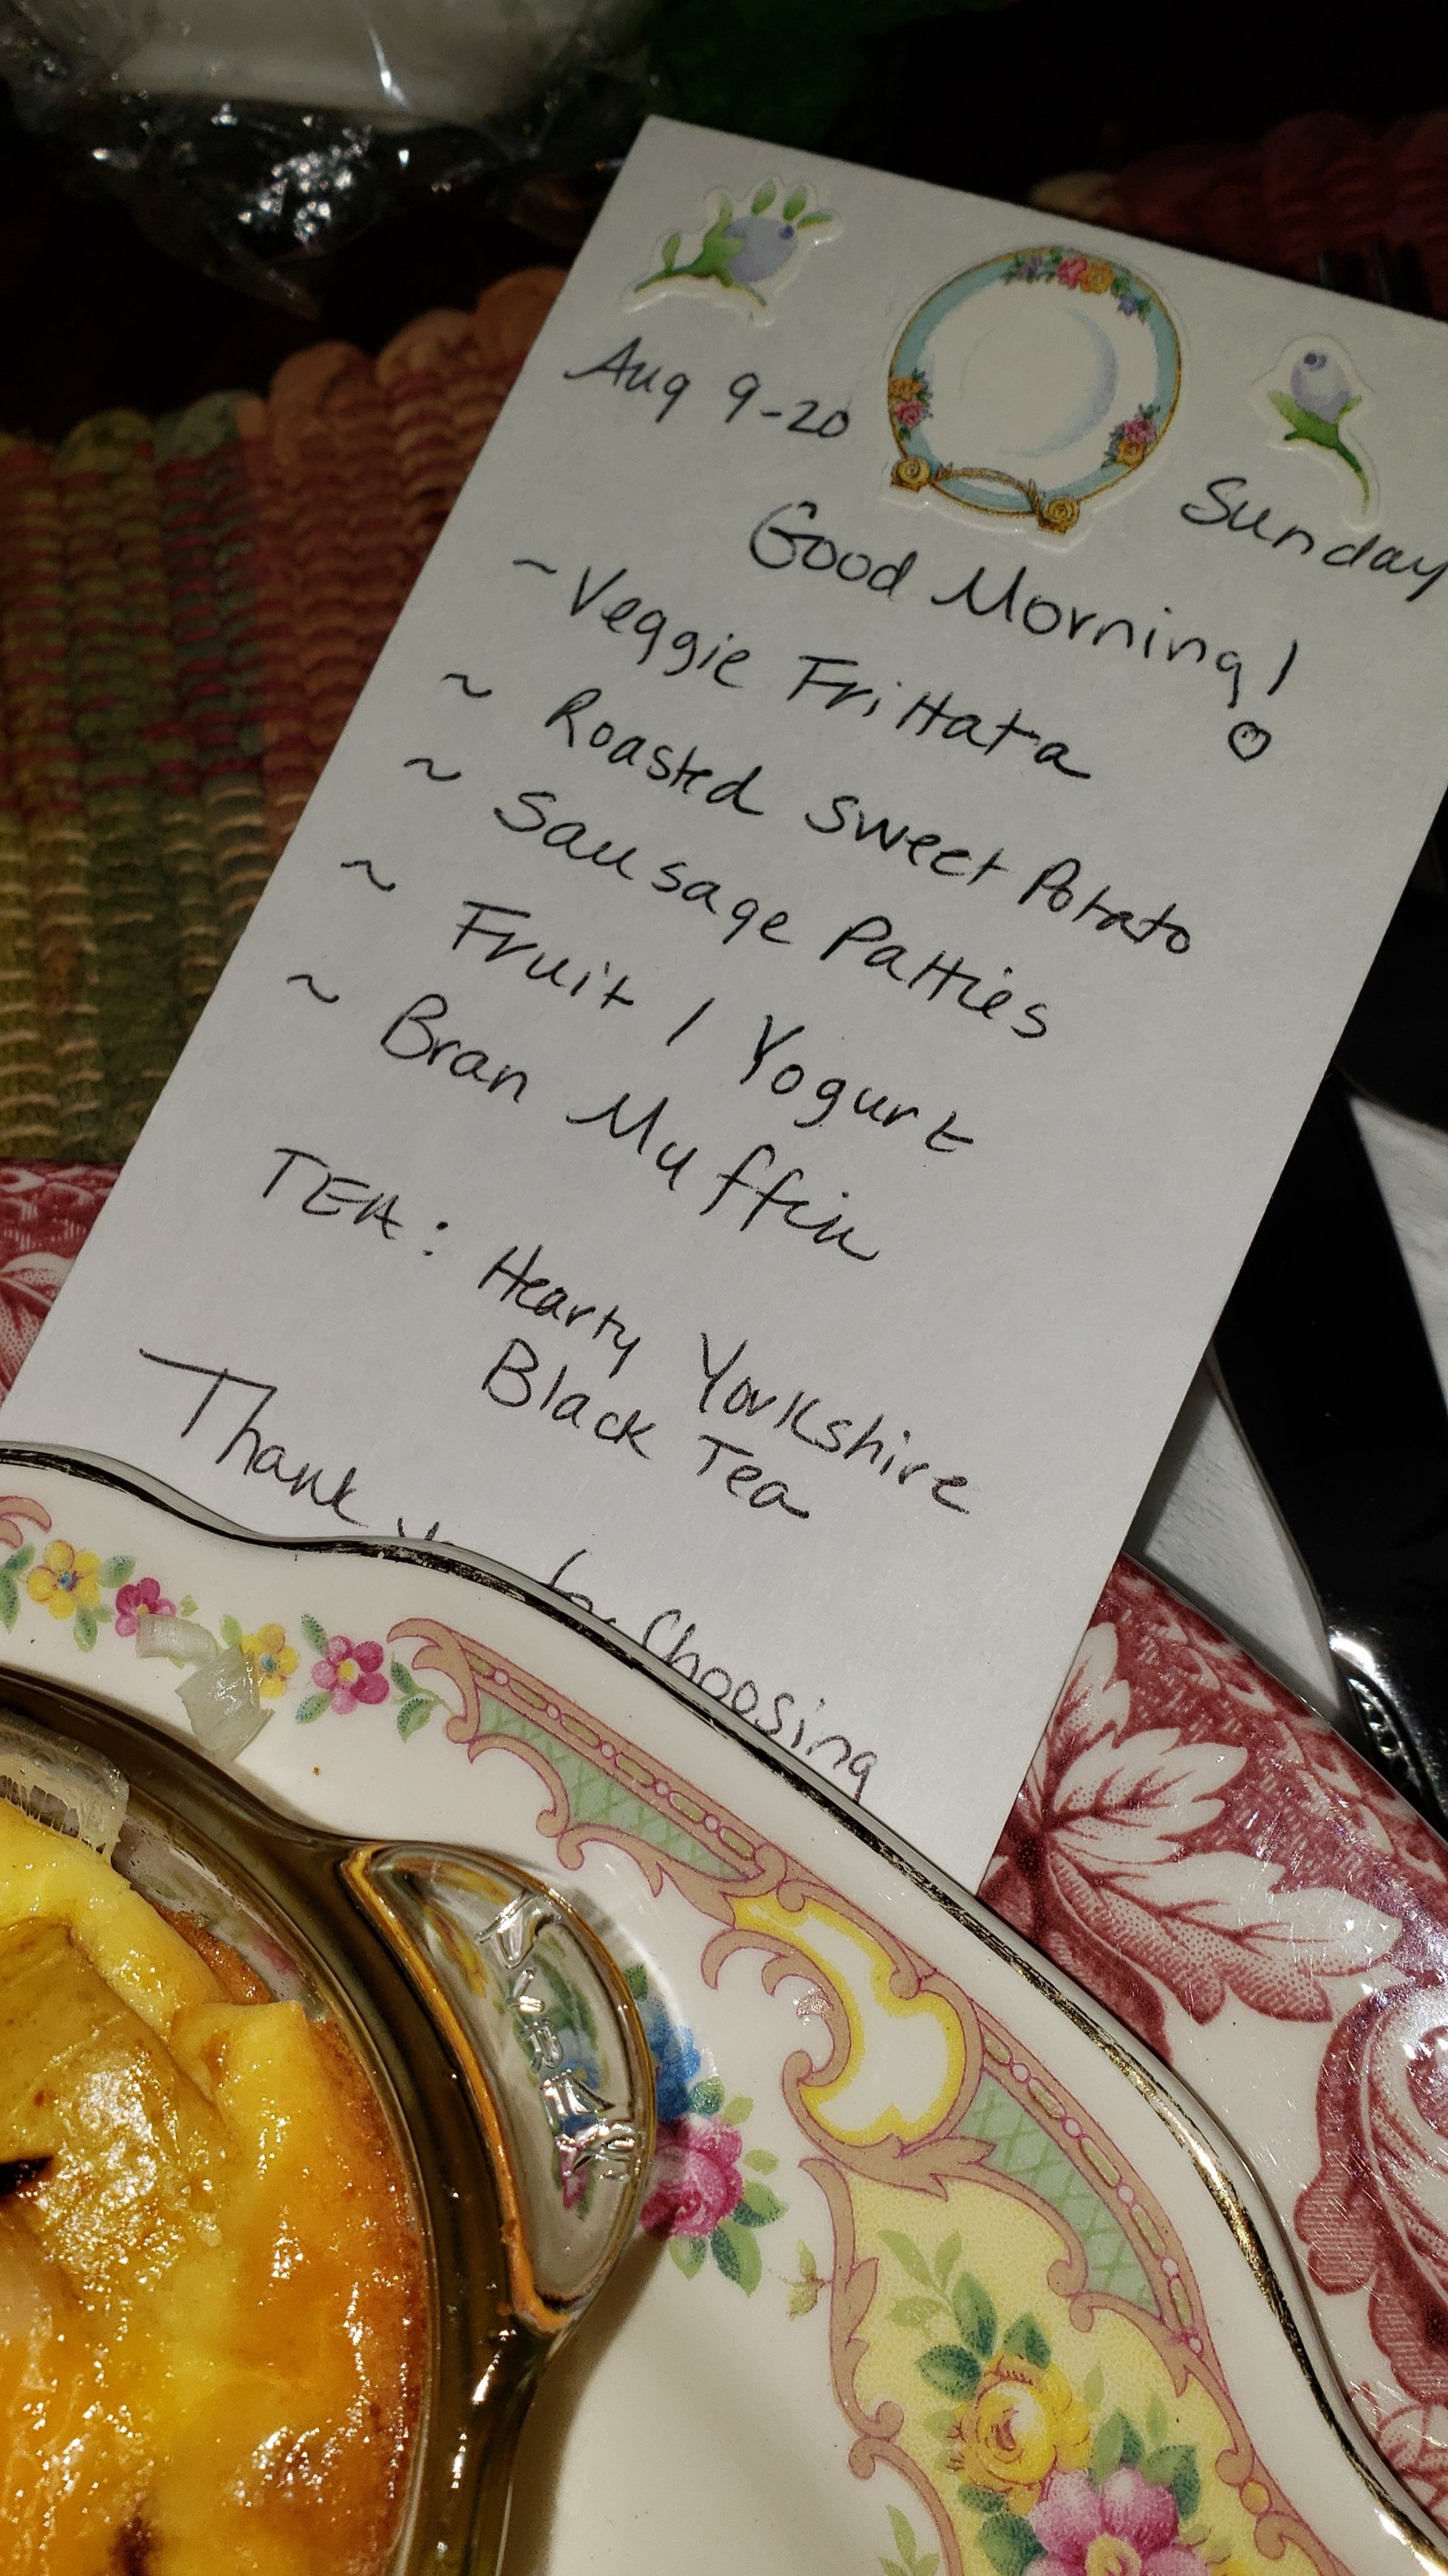 Aug 9-20
Sunday
Good Morning!
~ Veggie Frittata
~ Roasted Sweet Potato
~ Sausage Patties
~ Fruit / Yogurt
~ Bran Muffin
TEA: Hearty Yorkshire
Black Tea
Thank
Choosing